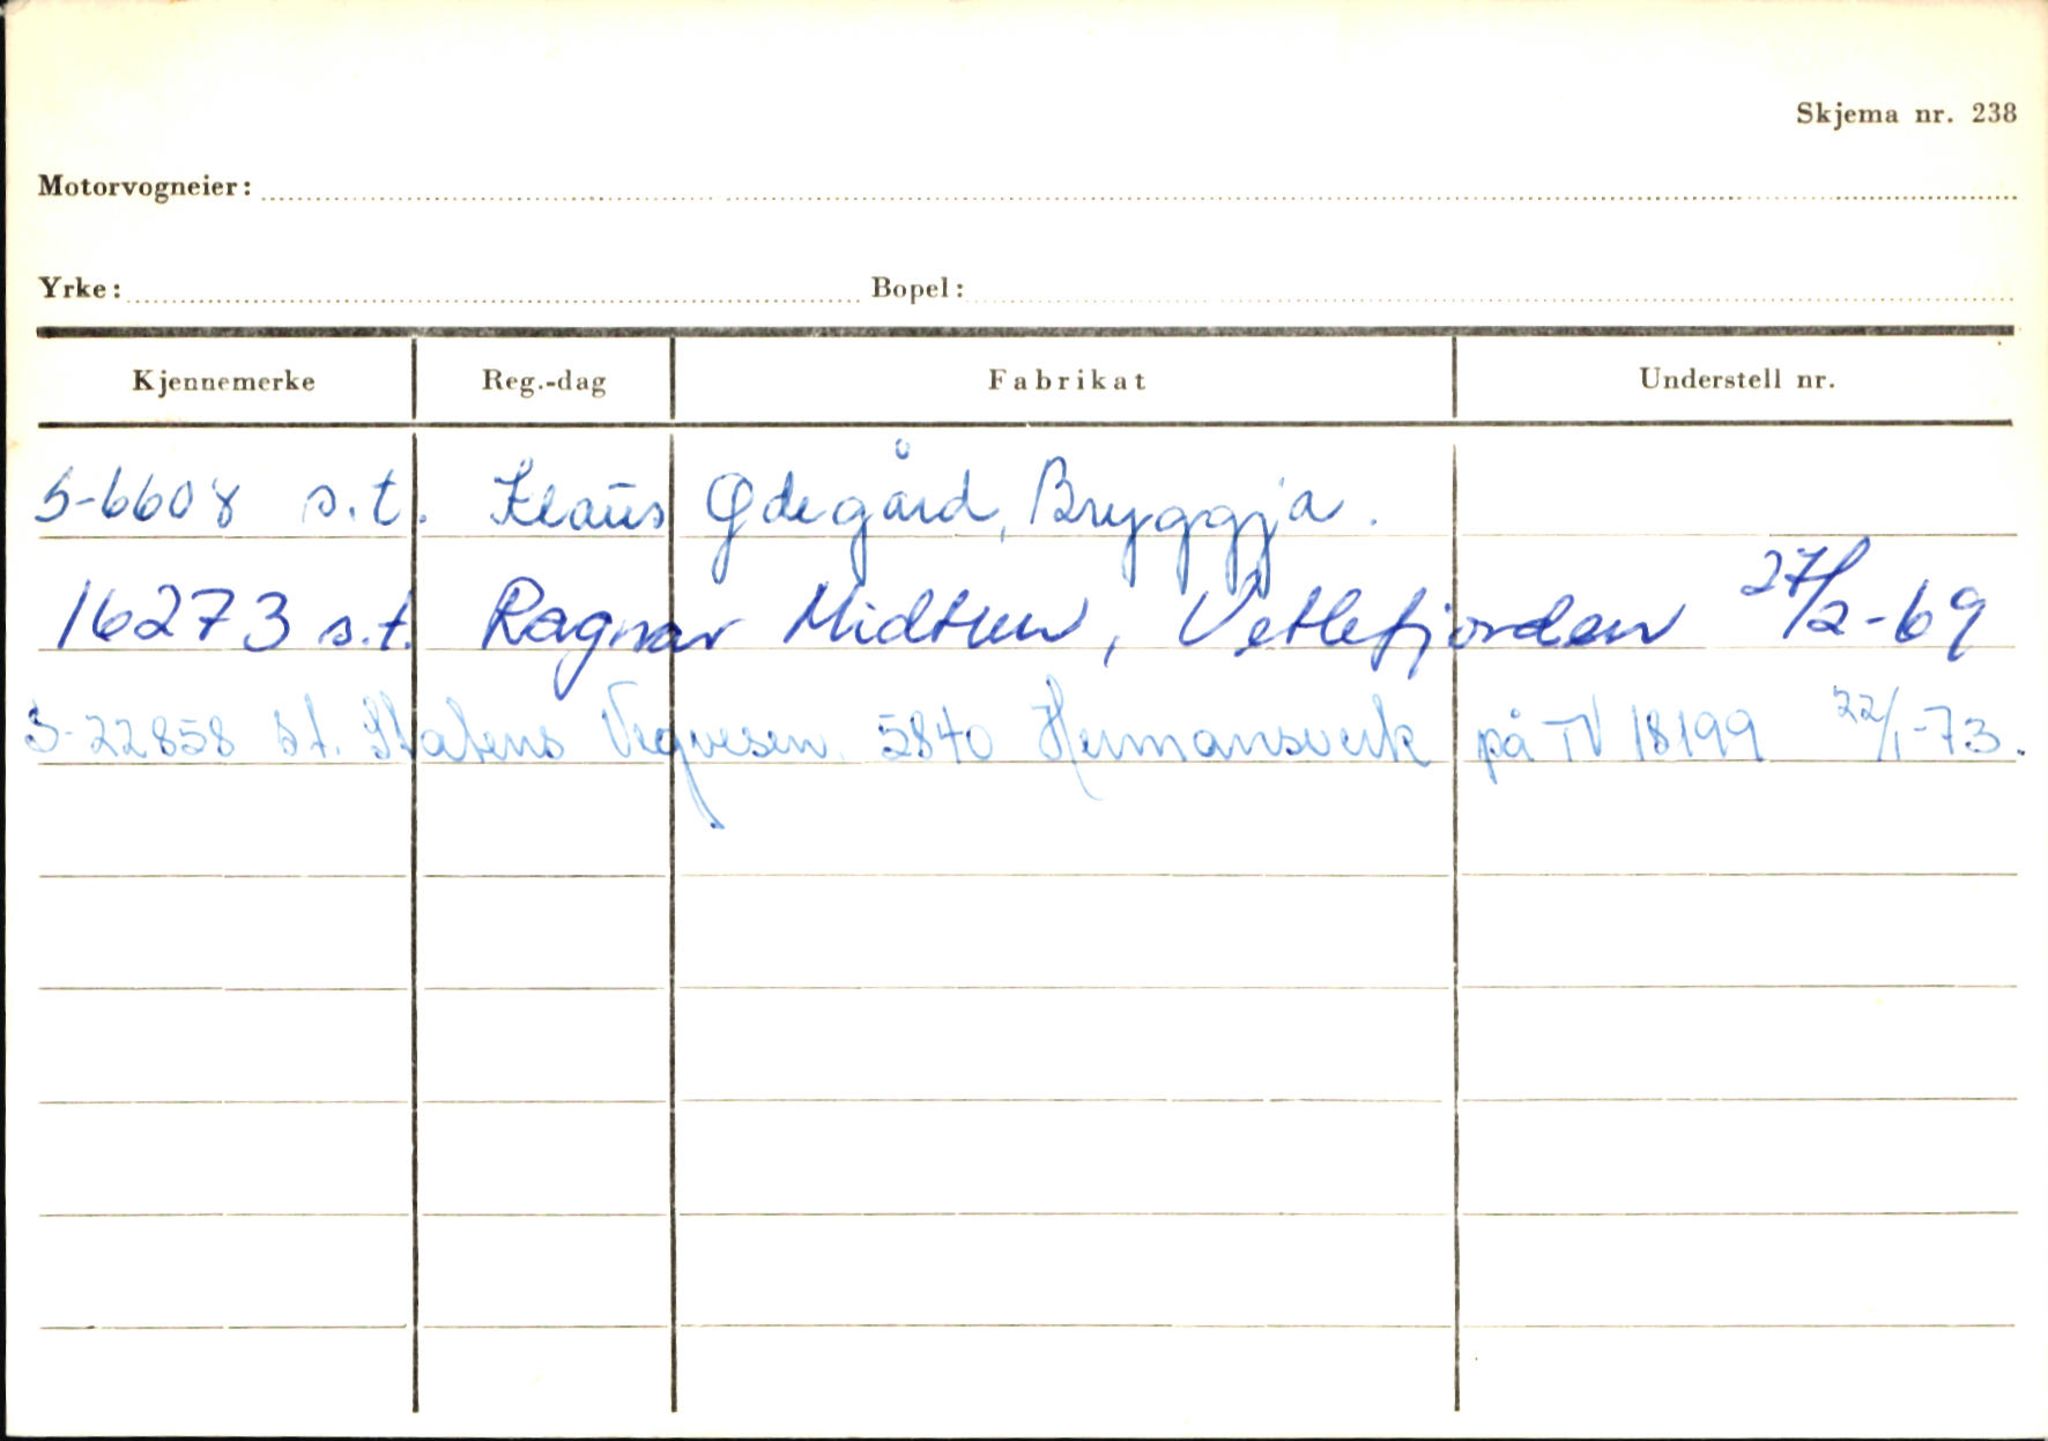 Skjema nr. 238
Motorvogneier:
Yrke: Bopel:
Kjennemerke Reg.-dag Fabrikat Understell nr.
S-6608 s.t. Klaus Ødegård, Bryggja.
16273 s.t. Ragnar Midtun, Vetlefjorden 27/2-69
S-22858 st. Statens Vegvesen. 5840 Hermansverk på TV 18199 22/1-73.